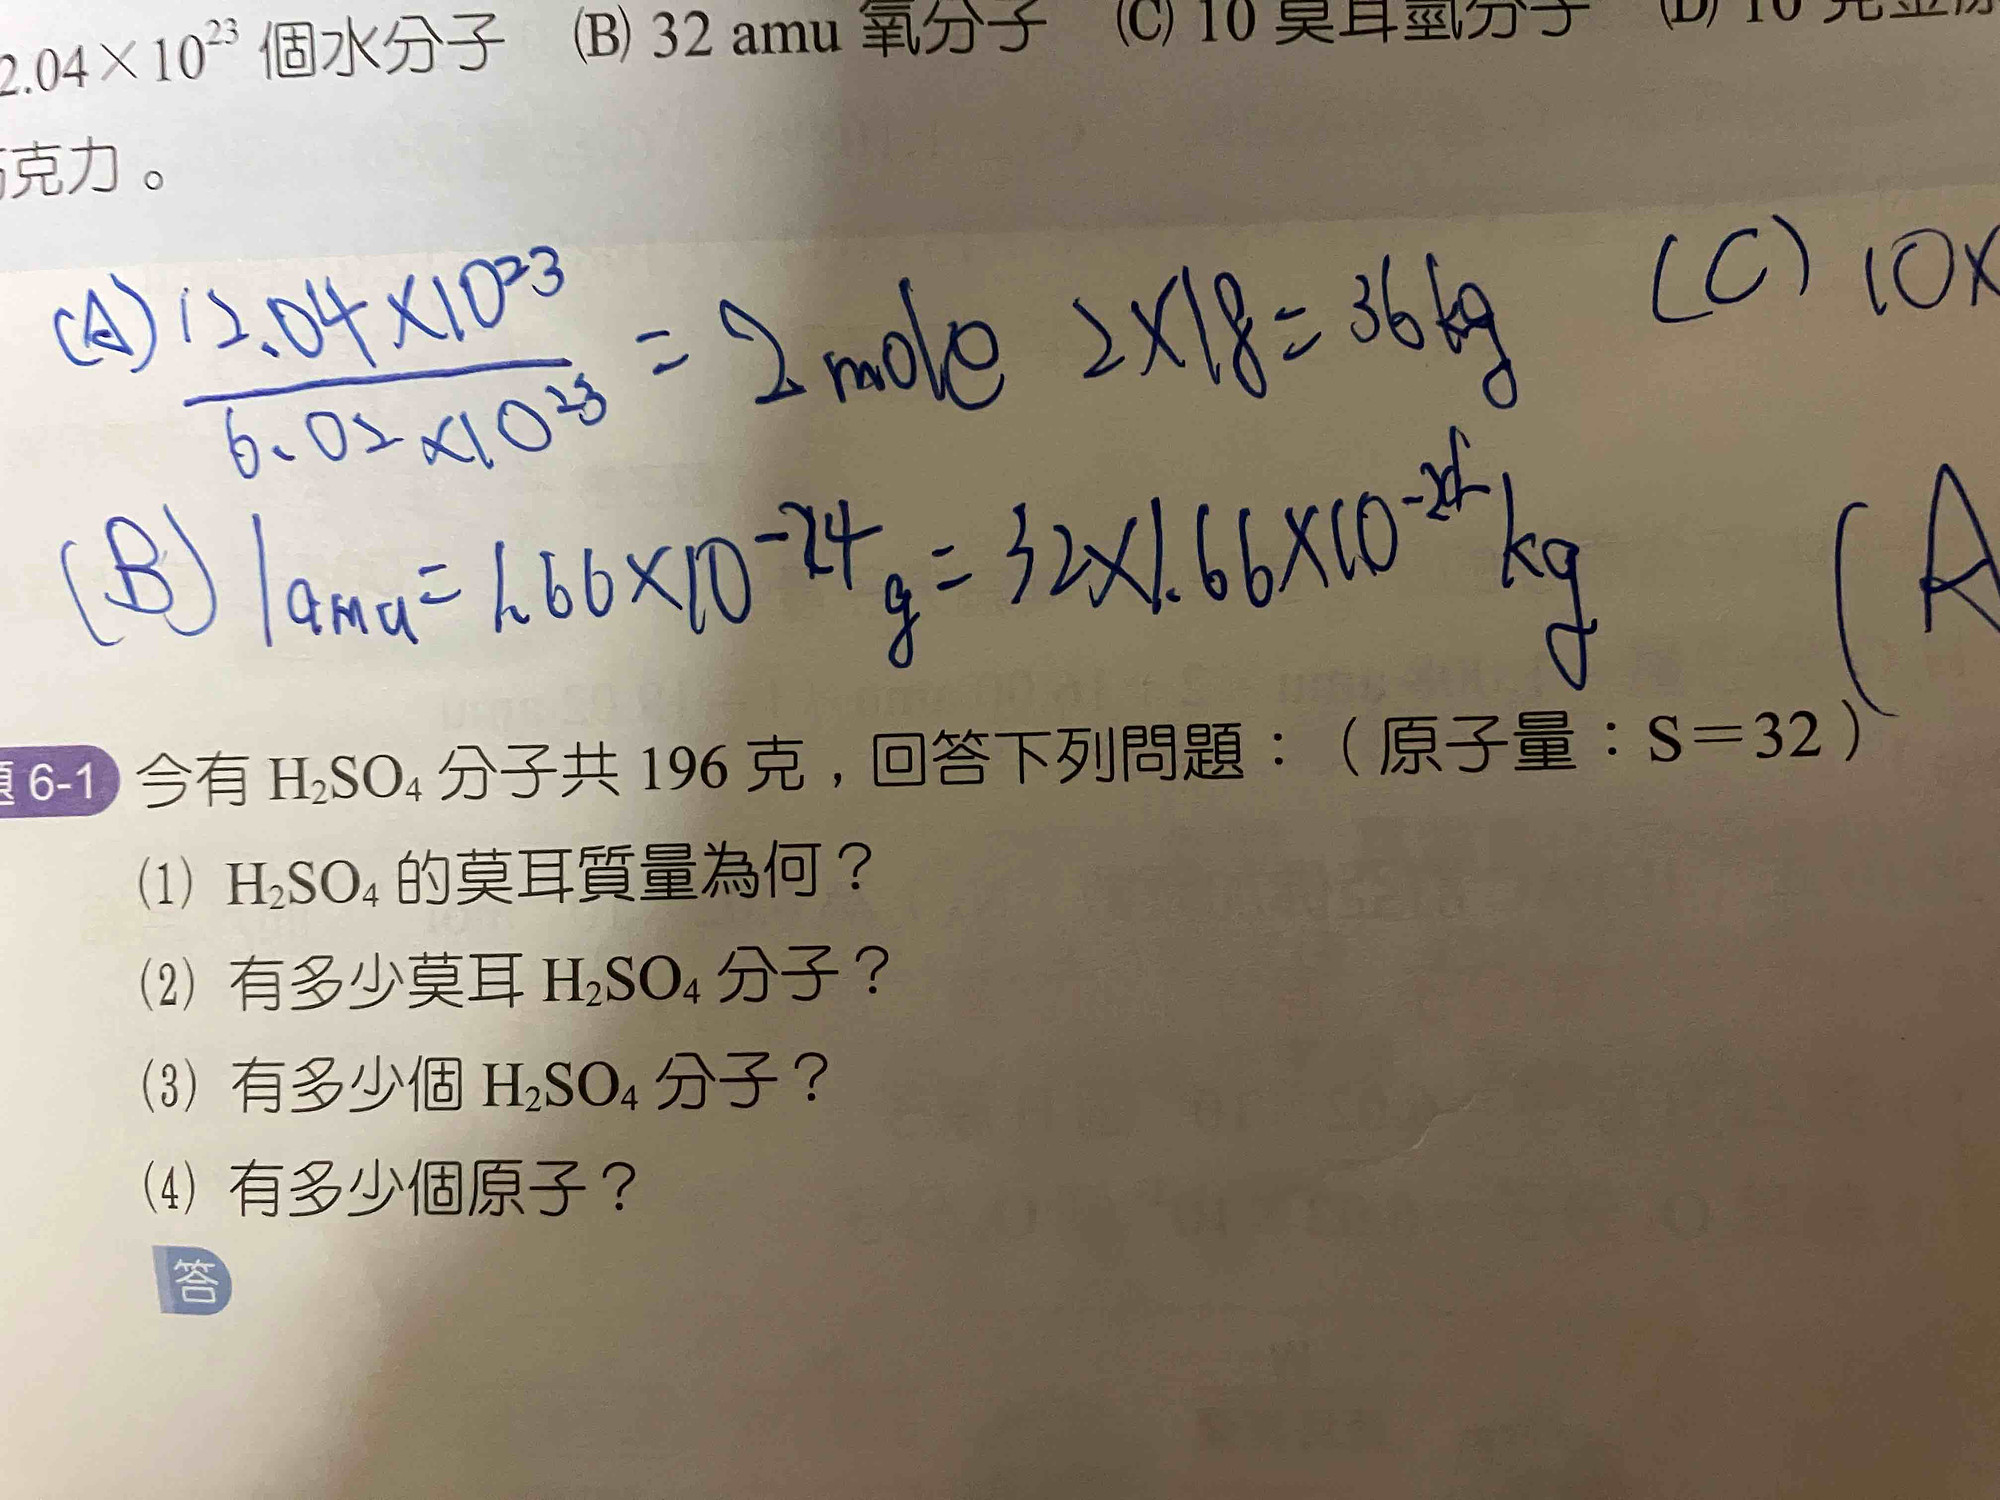 2.04×10²³ 個水分子 (B) 32 amu 氧分子 (C) 10 莫耳氫分子 (D) 10 克
克力。
(A) 12.04×10²³ / 6.02×10²³ = 2 mole 2×18=36kg (C) 10×
(B) 1amu=1.66×10⁻²⁴g=32×1.66×10⁻²⁴kg (A
題 6-1 今有 H₂SO₄ 分子共 196 克,回答下列問題:(原子量:S=32)
(1) H₂SO₄ 的莫耳質量為何?
(2) 有多少莫耳 H₂SO₄ 分子?
(3) 有多少個 H₂SO₄ 分子?
(4) 有多少個原子?
答